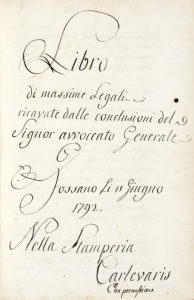 Libro
di massime Legali
ricavate dalle conclusioni del
Signor avvoccato Generale
Fossano Li 11 Giugno
1792.
Nella Stamperia
Carlevaris
Con permissione